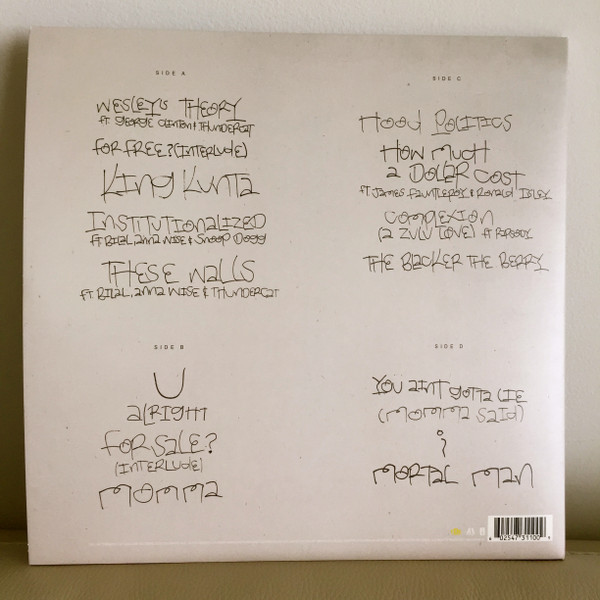 SIDE A
WESLEY'S THEORY
ft GEORGE CLINTON & THUNDERCAT
FOR FREE? (INTERLUDE)
KING KUNTA
INSTITUTIONALIZED
ft BILAL, ANNA WISE & SNOOP DOGG
THESE WALLS
ft. BILAL, ANNA WISE & THUNDERCAT
SIDE B
U
ALRIGHT
FOR SALE?
(INTERLUDE)
MOMMA
SIDE C
HOOD POLITICS
HOW MUCH
A DOLLAR COST
ft JAMES FAUNTLEROY & RONALD ISLEY
COMPLEXION
(A ZULU LOVE) ft RAPSODY
THE BLACKER THE BERRY
SIDE D
YOU AINT GOTTA LIE
(MOMMA SAID)
i
MORTAL MAN
6 02547 31100 9